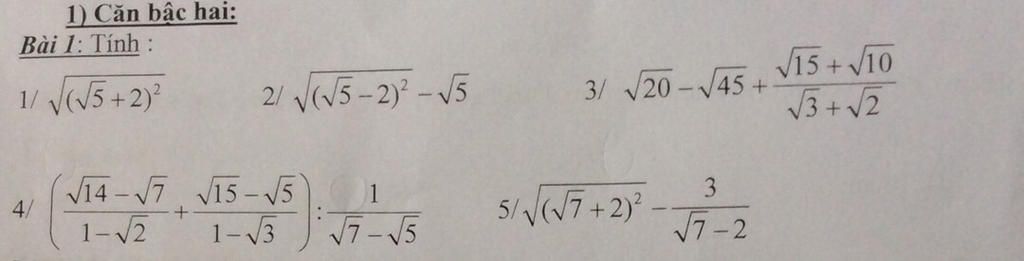 1) Căn bậc hai:
Bài 1: Tính :
1/ √((√5 + 2)²) 2/ √((√5 − 2)²) − √5 3/ √20 − √45 + (√15 + √10)/(√3 + √2)
4/ ((√14 − √7)/(1 − √2) + (√15 − √5)/(1 − √3)) : 1/(√7 − √5) 5/ √((√7 + 2)²) − 3/(√7 − 2)